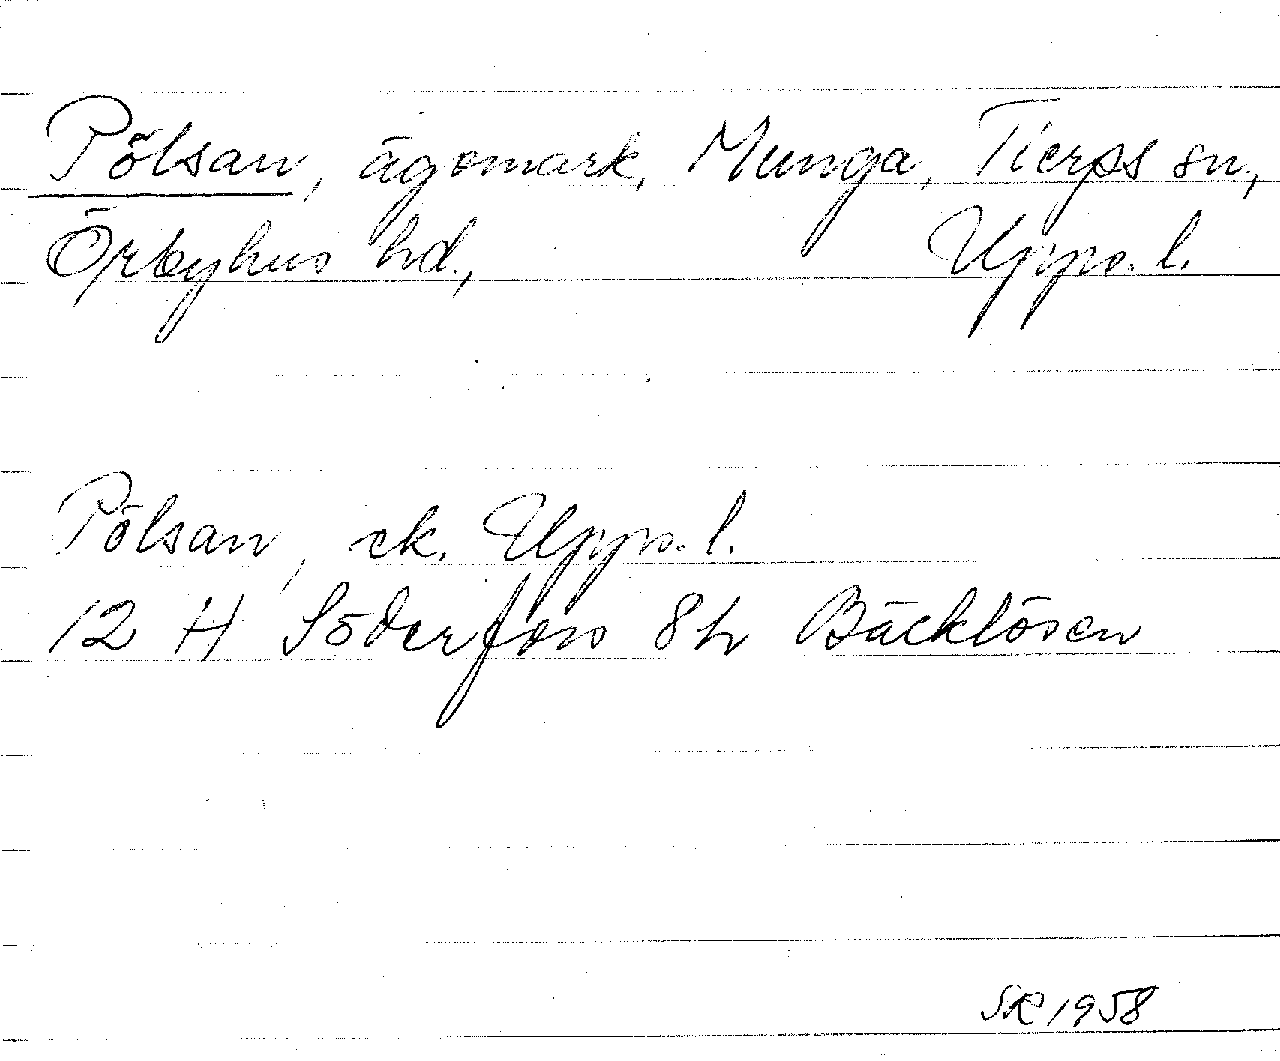 Pölsan, ägomark, Munga, Tierps sn,
Örbyhus hd., Upps. l.
Pölsan, ek. Upps. l.
12 H Söderfors 8h Bäcklösen
SR 1958